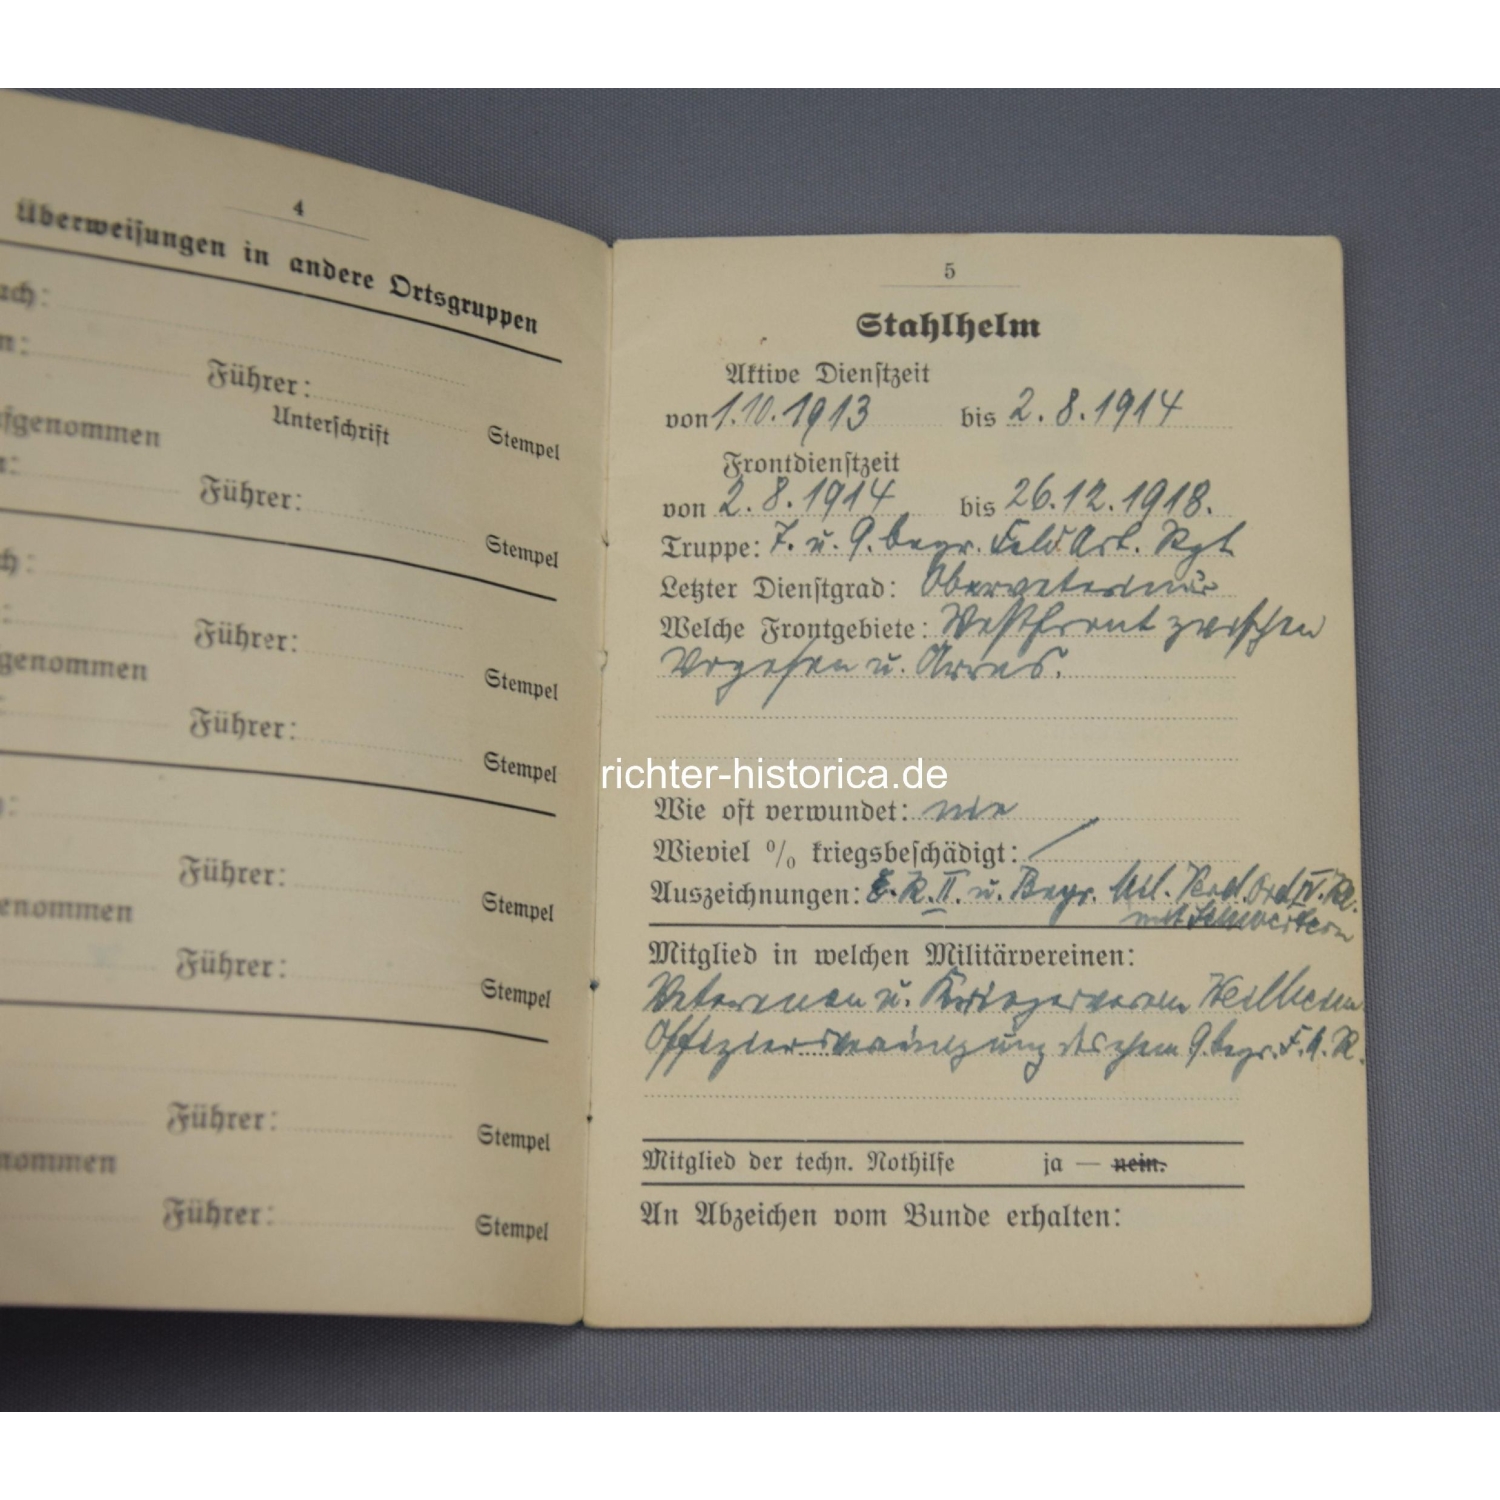 4
Überweisungen in andere Ortsgruppen
Führer:
Unterschrift
Stempel
Führer:
Stempel
Führer:
Stempel
genommen
Führer:
Stempel
Führer:
Stempel
enommen
Führer:
Stempel
Führer:
Stempel
nommen
Führer:
Stempel
5
Stahlhelm
Aktive Dienstzeit
von 1.10.1913 bis 2.8.1914
Frontdienstzeit
von 2.8.1914 bis 26.12.1918.
Truppe: 7. u. 9. bayr. Feld Art. Rgt
Letzter Dienstgrad: Oberveterinär
Welche Frontgebiete: Westfront zwischen
Vogesen u. Arras.
richter-historica.de
Wie oft verwundet: nie
Wieviel % kriegsbeschädigt: /
Auszeichnungen: E.K.II. u. Bayr. Mil. Verd. Ord IV. Kl.
mit Schwertern
Mitglied in welchen Militärvereinen:
Veteranen u. Kriegerverein Weilheim
Offiziersvereinigung des ehem 9. bayr. F.A.R.
Mitglied der techn. Nothilfe ja — nein.
An Abzeichen vom Bunde erhalten: